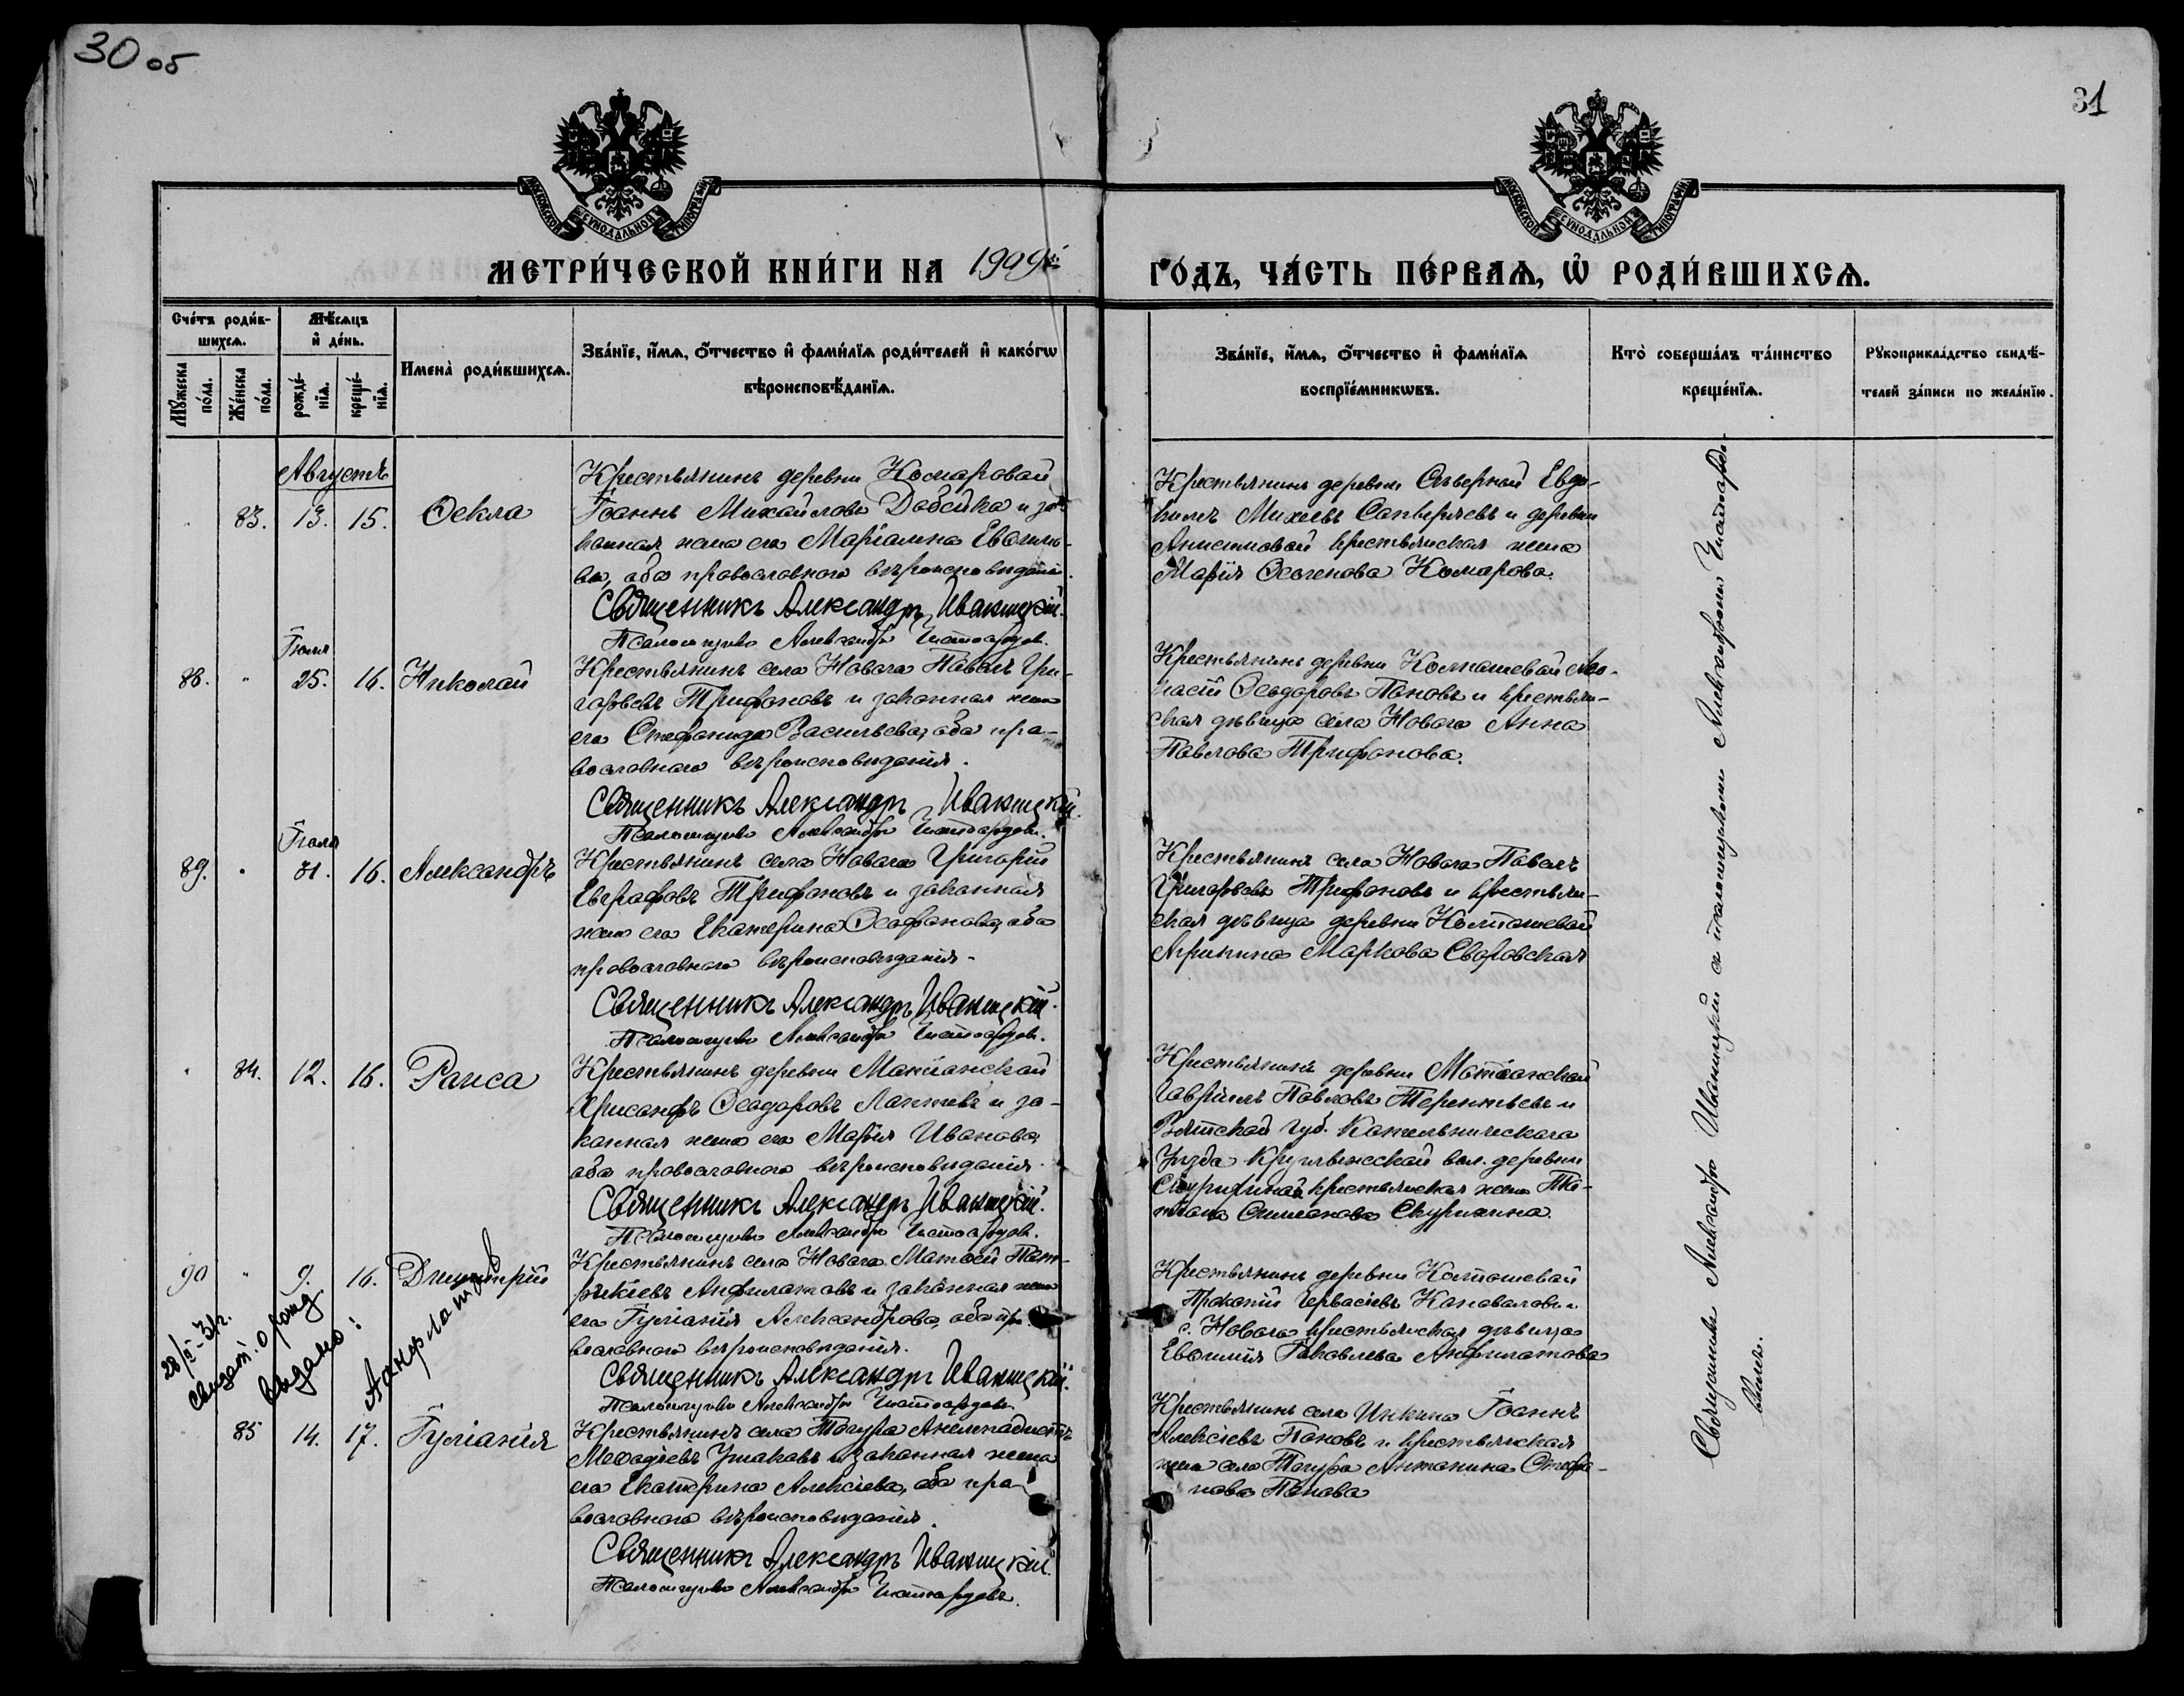 30 об
31
МОСКОВСКОЙ СѴНОДАЛЬНОЙ ТИПОГРАФІИ
МОСКОВСКОЙ СѴНОДАЛЬНОЙ ТИПОГРАФІИ
МЕТРИ́ЧЕСКОЙ КНИ́ГИ НА 1909й
ГО́ДЪ, ЧА́СТЬ ПЕ́РВАѦ, Ѡ҆ РОДИ́ВШИХСѦ.
Сче́тъ роди́в-
шихсѧ.
Мѣ́сѧцъ
и҆ де́нь.
Мꙋ́жеска
по́ла.
Же́нска
по́ла.
рожде́-
нїѧ.
креще́-
нїѧ.
Имена̀ роди́вшихсѧ.
Зва́нїе, и҆́мѧ, ѻ҆́тчество и҆ фами́лїѧ роди́телей и҆ како́гѡ
вѣроисповѣ́данїѧ.
Зва́нїе, и҆́мѧ, ѻ҆́тчество и҆ фами́лїѧ
воспрїе́мникѡвъ.
Кто̀ соверша́лъ та́инство
креще́нїѧ.
Рꙋкоприкла́дство свидѣ́-
телей за́писи по жела́нїю.
Августъ
83. 13. 15. Ѳекла
Крестьянинъ деревни Комаровой
Іоаннъ Михайловъ Добейка и за-
конная жена его Маріамна Евѳимо-
ва, оба православного вѣроисповѣданія.
Священникъ Александръ Иваницкій.
Псаломщикъ Александръ
Крестьянинъ деревни Сѣверной Евдо-
кимъ Михеевъ и деревни
Анисимовой крестьянская жена
Марія Комарова.
Іюля
88. " 25. 16. Николай
Крестьянинъ села Новаго Павелъ Гри-
горьевъ Трифоновъ и законная жена
его Стефанида Васильева, оба пра-
вославного вѣроисповѣданія.
Священникъ Александръ Иваницкій.
Псаломщикъ Александръ
Крестьянинъ деревни Колпашевой Аѳа-
насій Ѳеодоровъ Пановъ и крестьян-
ская дѣвица села Новаго Анна
Павлова Трифонова.
Іюля
89. " 31. 16. Александръ
Крестьянинъ села Новаго Григорій
Евграфовъ Трифоновъ и законная
жена его Екатерина Ѳеофанова, оба
православного вѣроисповѣданія.
Священникъ Александръ Иваницкій.
Псаломщикъ Александръ
Крестьянинъ села Новаго Павелъ
Григорьевъ Трифоновъ и крестьян-
ская дѣвица деревни Колпашевой
Агрипина Маркова Сваровская
" 84. 12. 16. Раиса
Крестьянинъ деревни Матіанской
Хрисанфъ Ѳеодоровъ Лаптевъ и за-
конная жена его Марія Иванова,
оба православного вѣроисповѣданія.
Священникъ Александръ Иваницкій.
Псаломщикъ Александръ
Крестьянинъ деревни Матіанской
Гавріилъ Павловъ Терентьевъ и
Вятской губ. Котельническаго
Уѣзда вол. деревни
Скурихиной крестьянская жена Та-
тіана Симанова Скурихина.
90 " 9. 16. Димитрій
Крестьянинъ села Новаго Матѳей Пат-
рикіевъ Анфилатовъ и законная жена
его Іуліанія Александрова, оба пра-
вославного вѣроисповѣданія.
Священникъ Александръ Иваницкій.
Псаломщикъ Александръ
Крестьянинъ деревни Колпашевой
Прокопій Гервасіевъ Коноваловъ и
с. Новаго крестьянская дѣвица
Евѳимія Яковлева Анфилатова
28/II-31г.
свидет. о рожд.
выдано:
Анфилатов
85 14. 17. Іуліанія
Крестьянинъ села Тогура Ампладистъ
Меѳодіевъ Ушаковъ и законная жена
его Екатерина Алексіева, оба пра-
вославного вѣроисповѣданія.
Священникъ Александръ Иваницкій.
Псаломщикъ Александръ
Крестьянинъ села Инкина Іоаннъ
Алексіевъ Пановъ и крестьянская
жена села Тогура Антонина Стефа-
нова Панова
Священникъ Александръ Иваницкій съ псаломщикомъ Александромъ